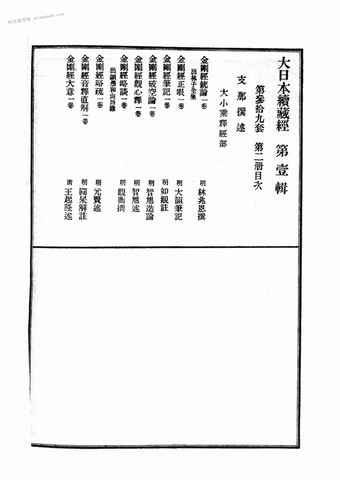 大日本續藏經 第壹輯
第參拾九套 第二册目次
支那撰述
大小乘釋經部
金剛經統論一卷 明 林兆恩撰
金剛經正眼一卷 明 大韶筆記
金剛經筆記一卷 明 如觀註
金剛經破空論一卷 明 智旭造論
金剛經觀心釋一卷 明 智旭述
金剛經略談一卷 明 觀衡撰
金剛經略疏一卷 明 元賢述
金剛經音釋直解一卷 明 圓杲解註
金剛經大意一卷 清 王起隆述